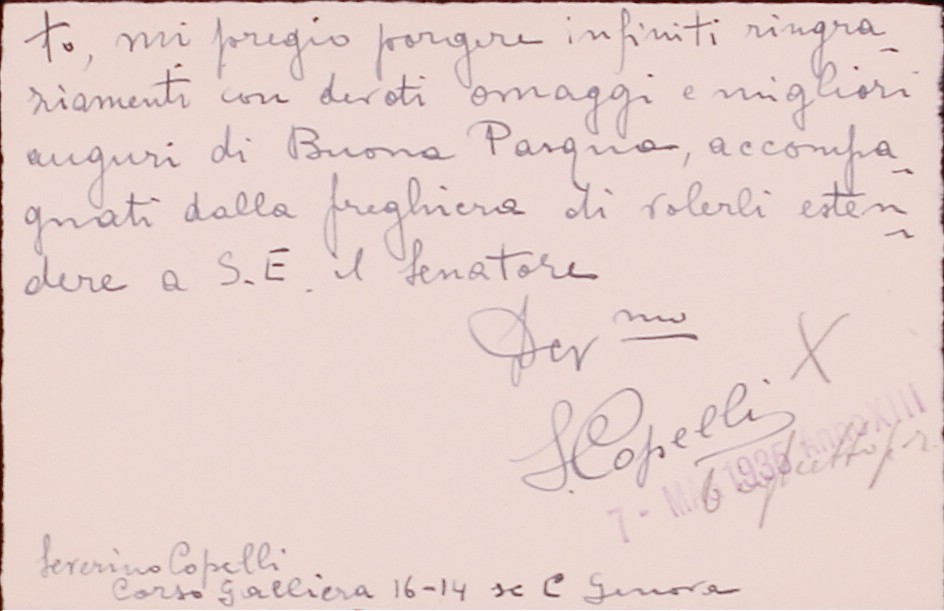 to, mi pregio porgere infiniti ringra_
ziamenti con devoti omaggi e migliori
auguri di Buona Pasqua, accompa_
gnati dalla preghiera di volerli esten_
dere a S.E. il Senatore
Dev mo
X
S. Copelli
7 - MAG 1935 Anno XIII
Severino Copelli
Corso Galliera 16-14 sc C Genova